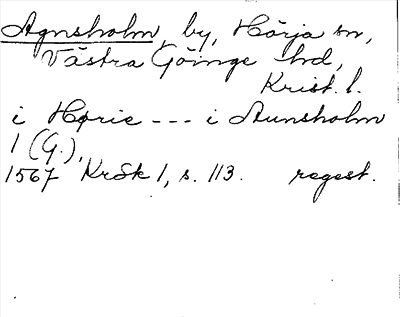 Agnsholm, by, Hörja sn,
Västra Göinge hd,
Krist. l.
i Hørie --- i Aunsholm
1 (G.),
1567 KrSk 1, s. 113. regest.